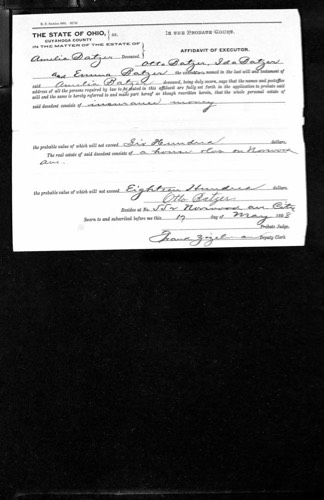 THE STATE OF OHIO, } SS.
CUYAHOGA COUNTY
IN THE MATTER OF THE ESTATE OF
IN THE PROBATE COURT.
AFFIDAVIT OF EXECUTOR.
Amelia Batzer Deceased Otto Batzer, Ida Batzer
and Emma Batzer the executors named in the last will and testament of
said Amelia Batzer deceased, being duly sworn, says that the names and postoffice
address of all the persons required by law to be stated in this affidavit are fully set forth in the application to probate said
will and the same is hereby referred to and made part hereof as though rewritten herein, that the whole personal estate of
said decedent consists of insurance money
the probable value of which will not exceed Six Hundred dollars.
The real estate of said decedent consists of a house on Norwood
ave.
the probable value of which will not exceed Eighteen Hundred dollars.
Otto Batzer
Resides at No. Norwood ave City
Sworn to and subscribed before me this 19 day of May 8
Probate Judge.
Deputy Clerk